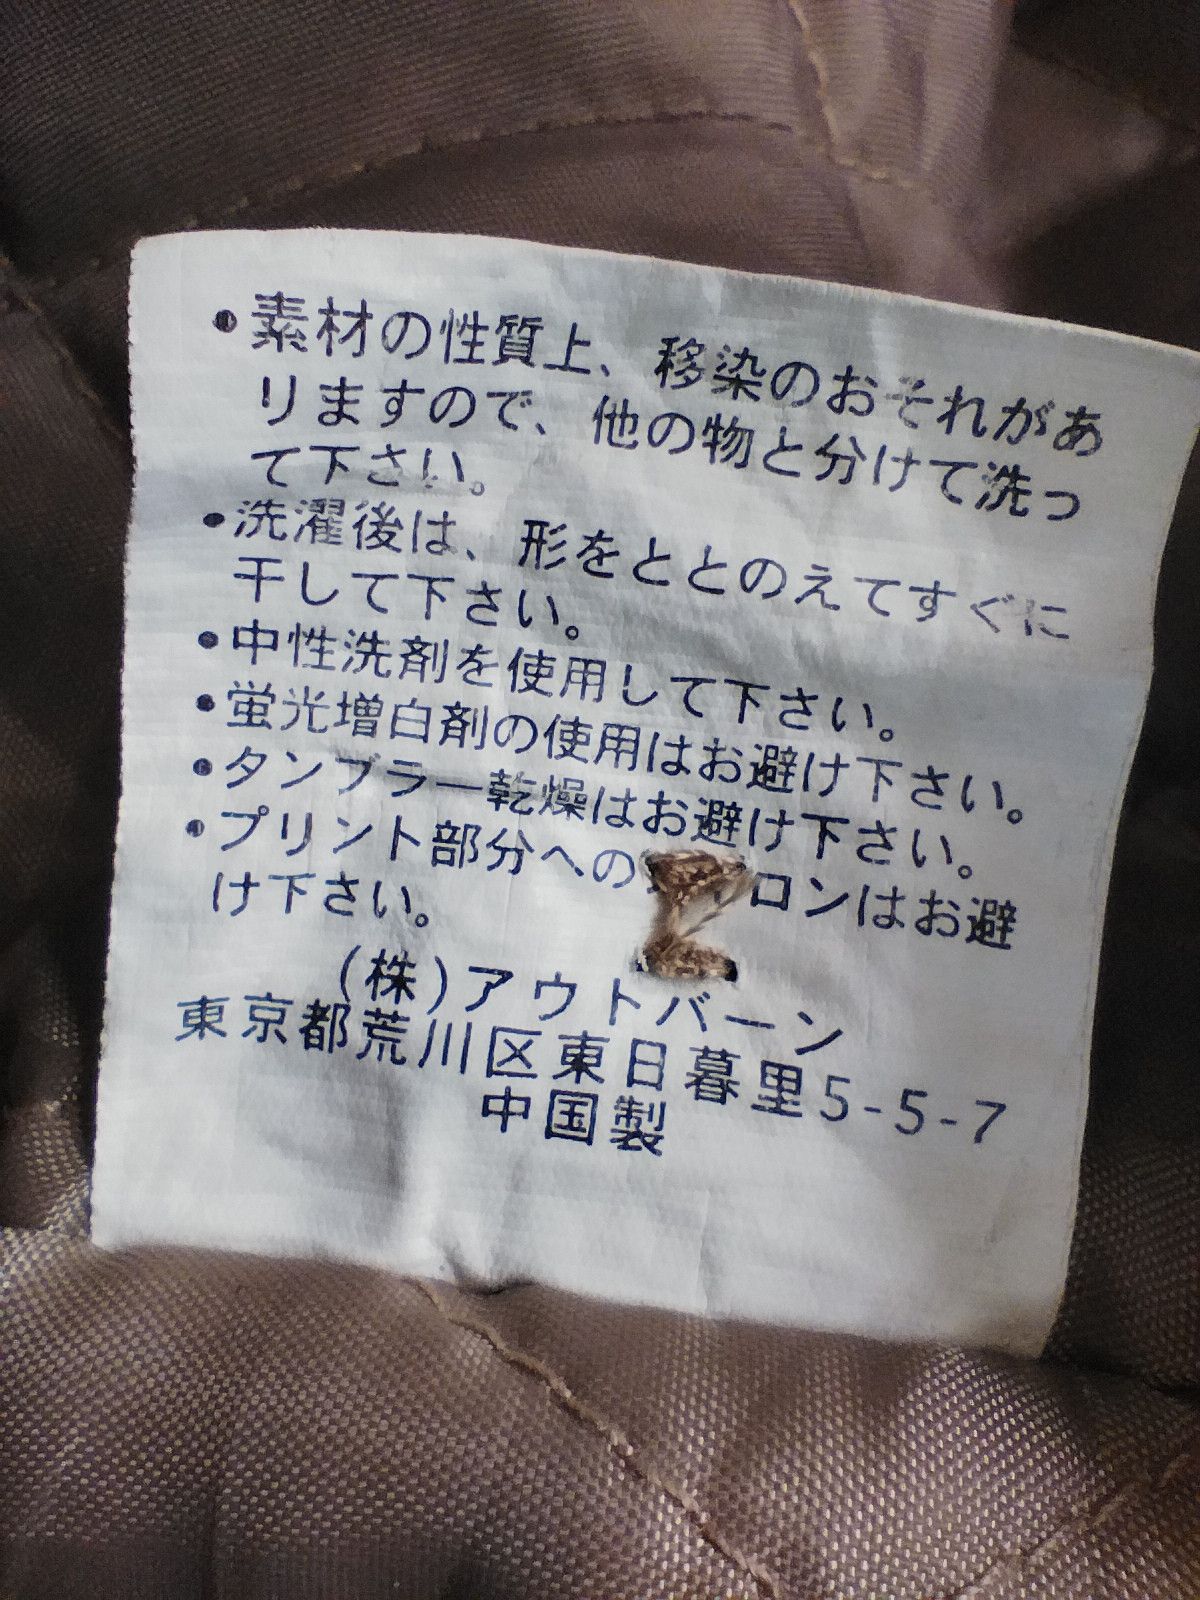 ・素材の性質上、移染のおそれがあ
りますので、他の物と分けて洗っ
て下さい。
・洗濯後は、形をととのえてすぐに
干して下さい。
・中性洗剤を使用して下さい。
・蛍光増白剤の使用はお避け下さい。
・タンブラー乾燥はお避け下さい。
・プリント部分へのアイロンはお避
け下さい。
(株)アウトバーン
東京都荒川区東日暮里5-5-7
中国製